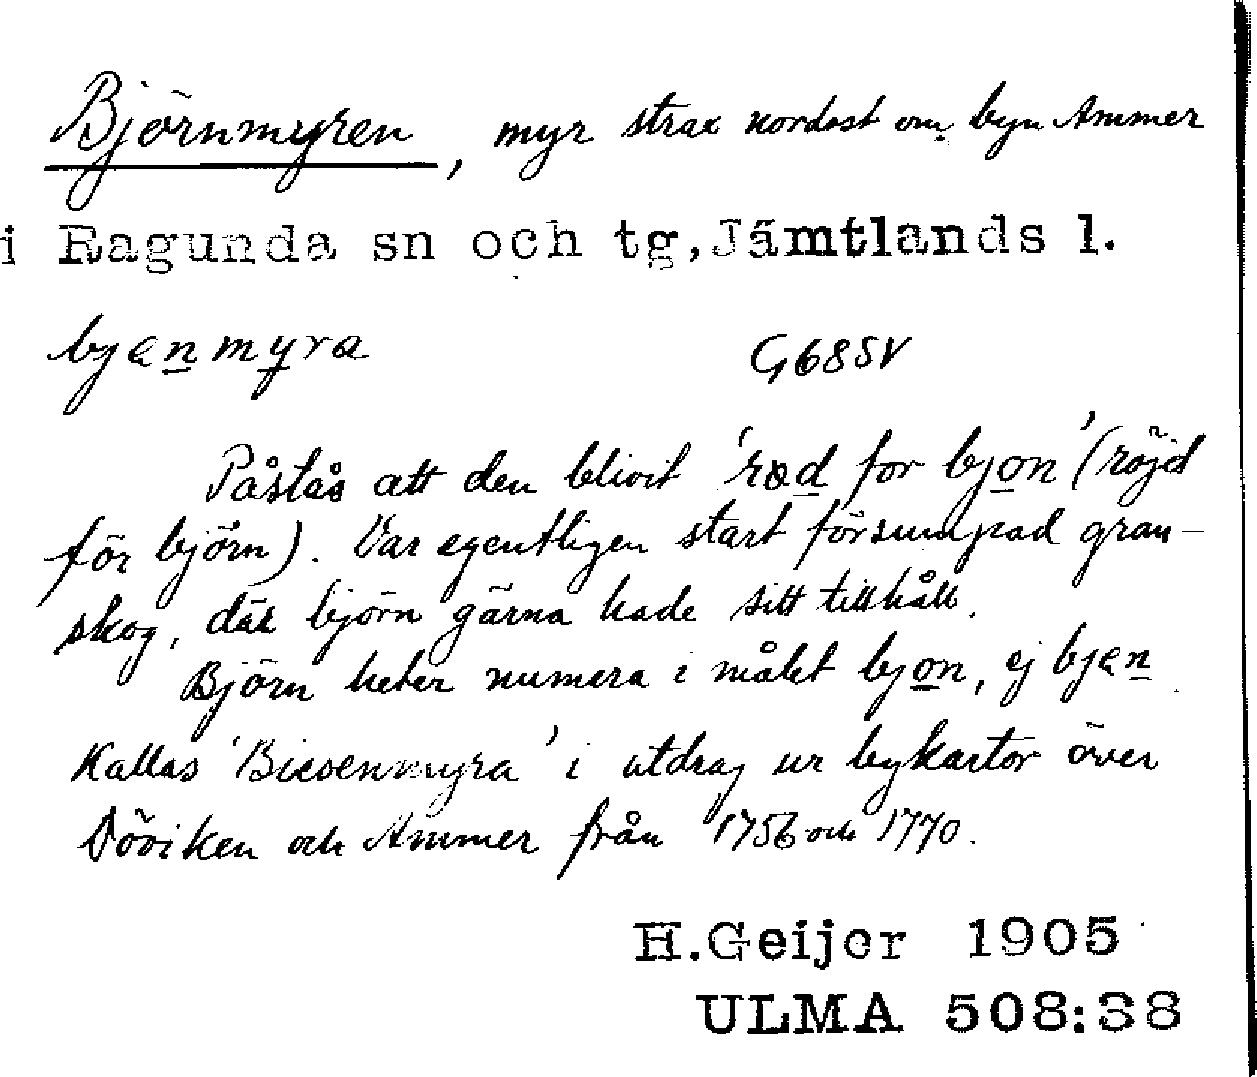 Björnmyren, myr strax nordost om byn Ammer
i Ragunda sn och tg, Jämtlands l.
bjɛnmyra G68SV
Påstås att den blivit 'rɵd for bjon' (röjd
för björn). Var egentligen starkt försumpad gran-
skog, där björn gärna hade sitt tillhåll.
Björn heter numera i målet bjon, ej bjɛn
Kallas 'Biesenmyra' i utdrag ur bykartor över
Döviken och Ammer från 1756 och 1770.
H.Geijer 1905
ULMA 508:38